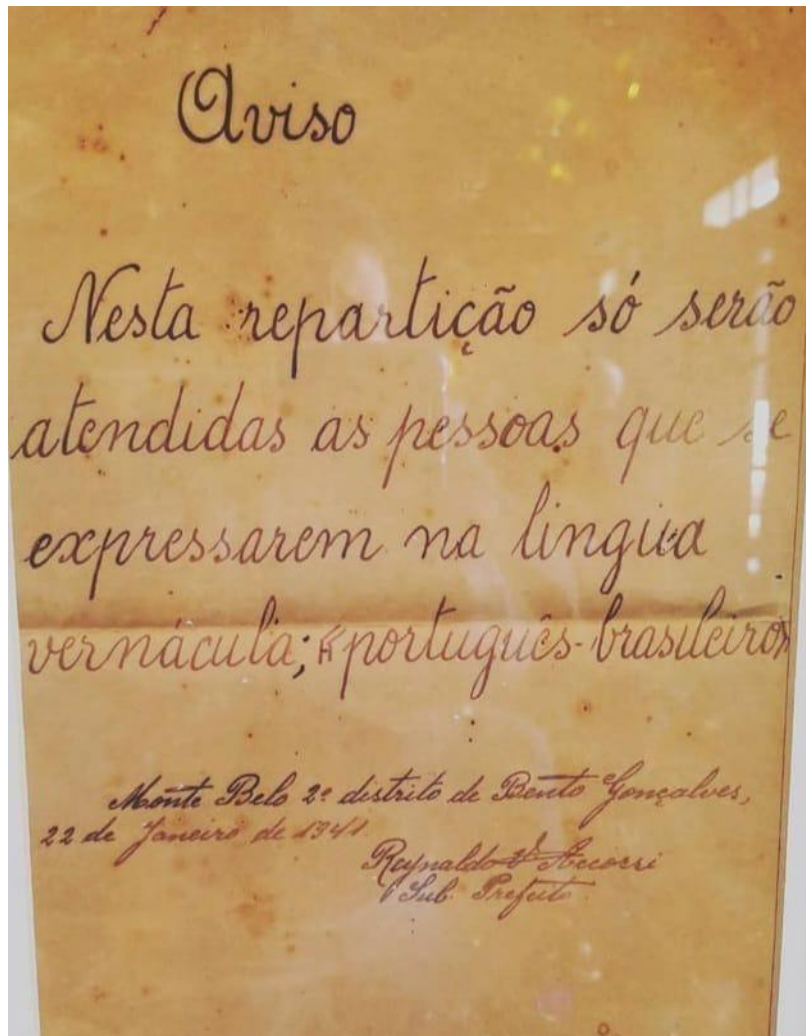 Aviso
Nesta repartição só serão
atendidas as pessoas que se
expressarem na lingua
vernácula; português-brasileiro
Monte Belo 2º distrito de Bento Gonçalves,
22 de Janeiro de 1941
Reynaldo
Sub. Prefeito.